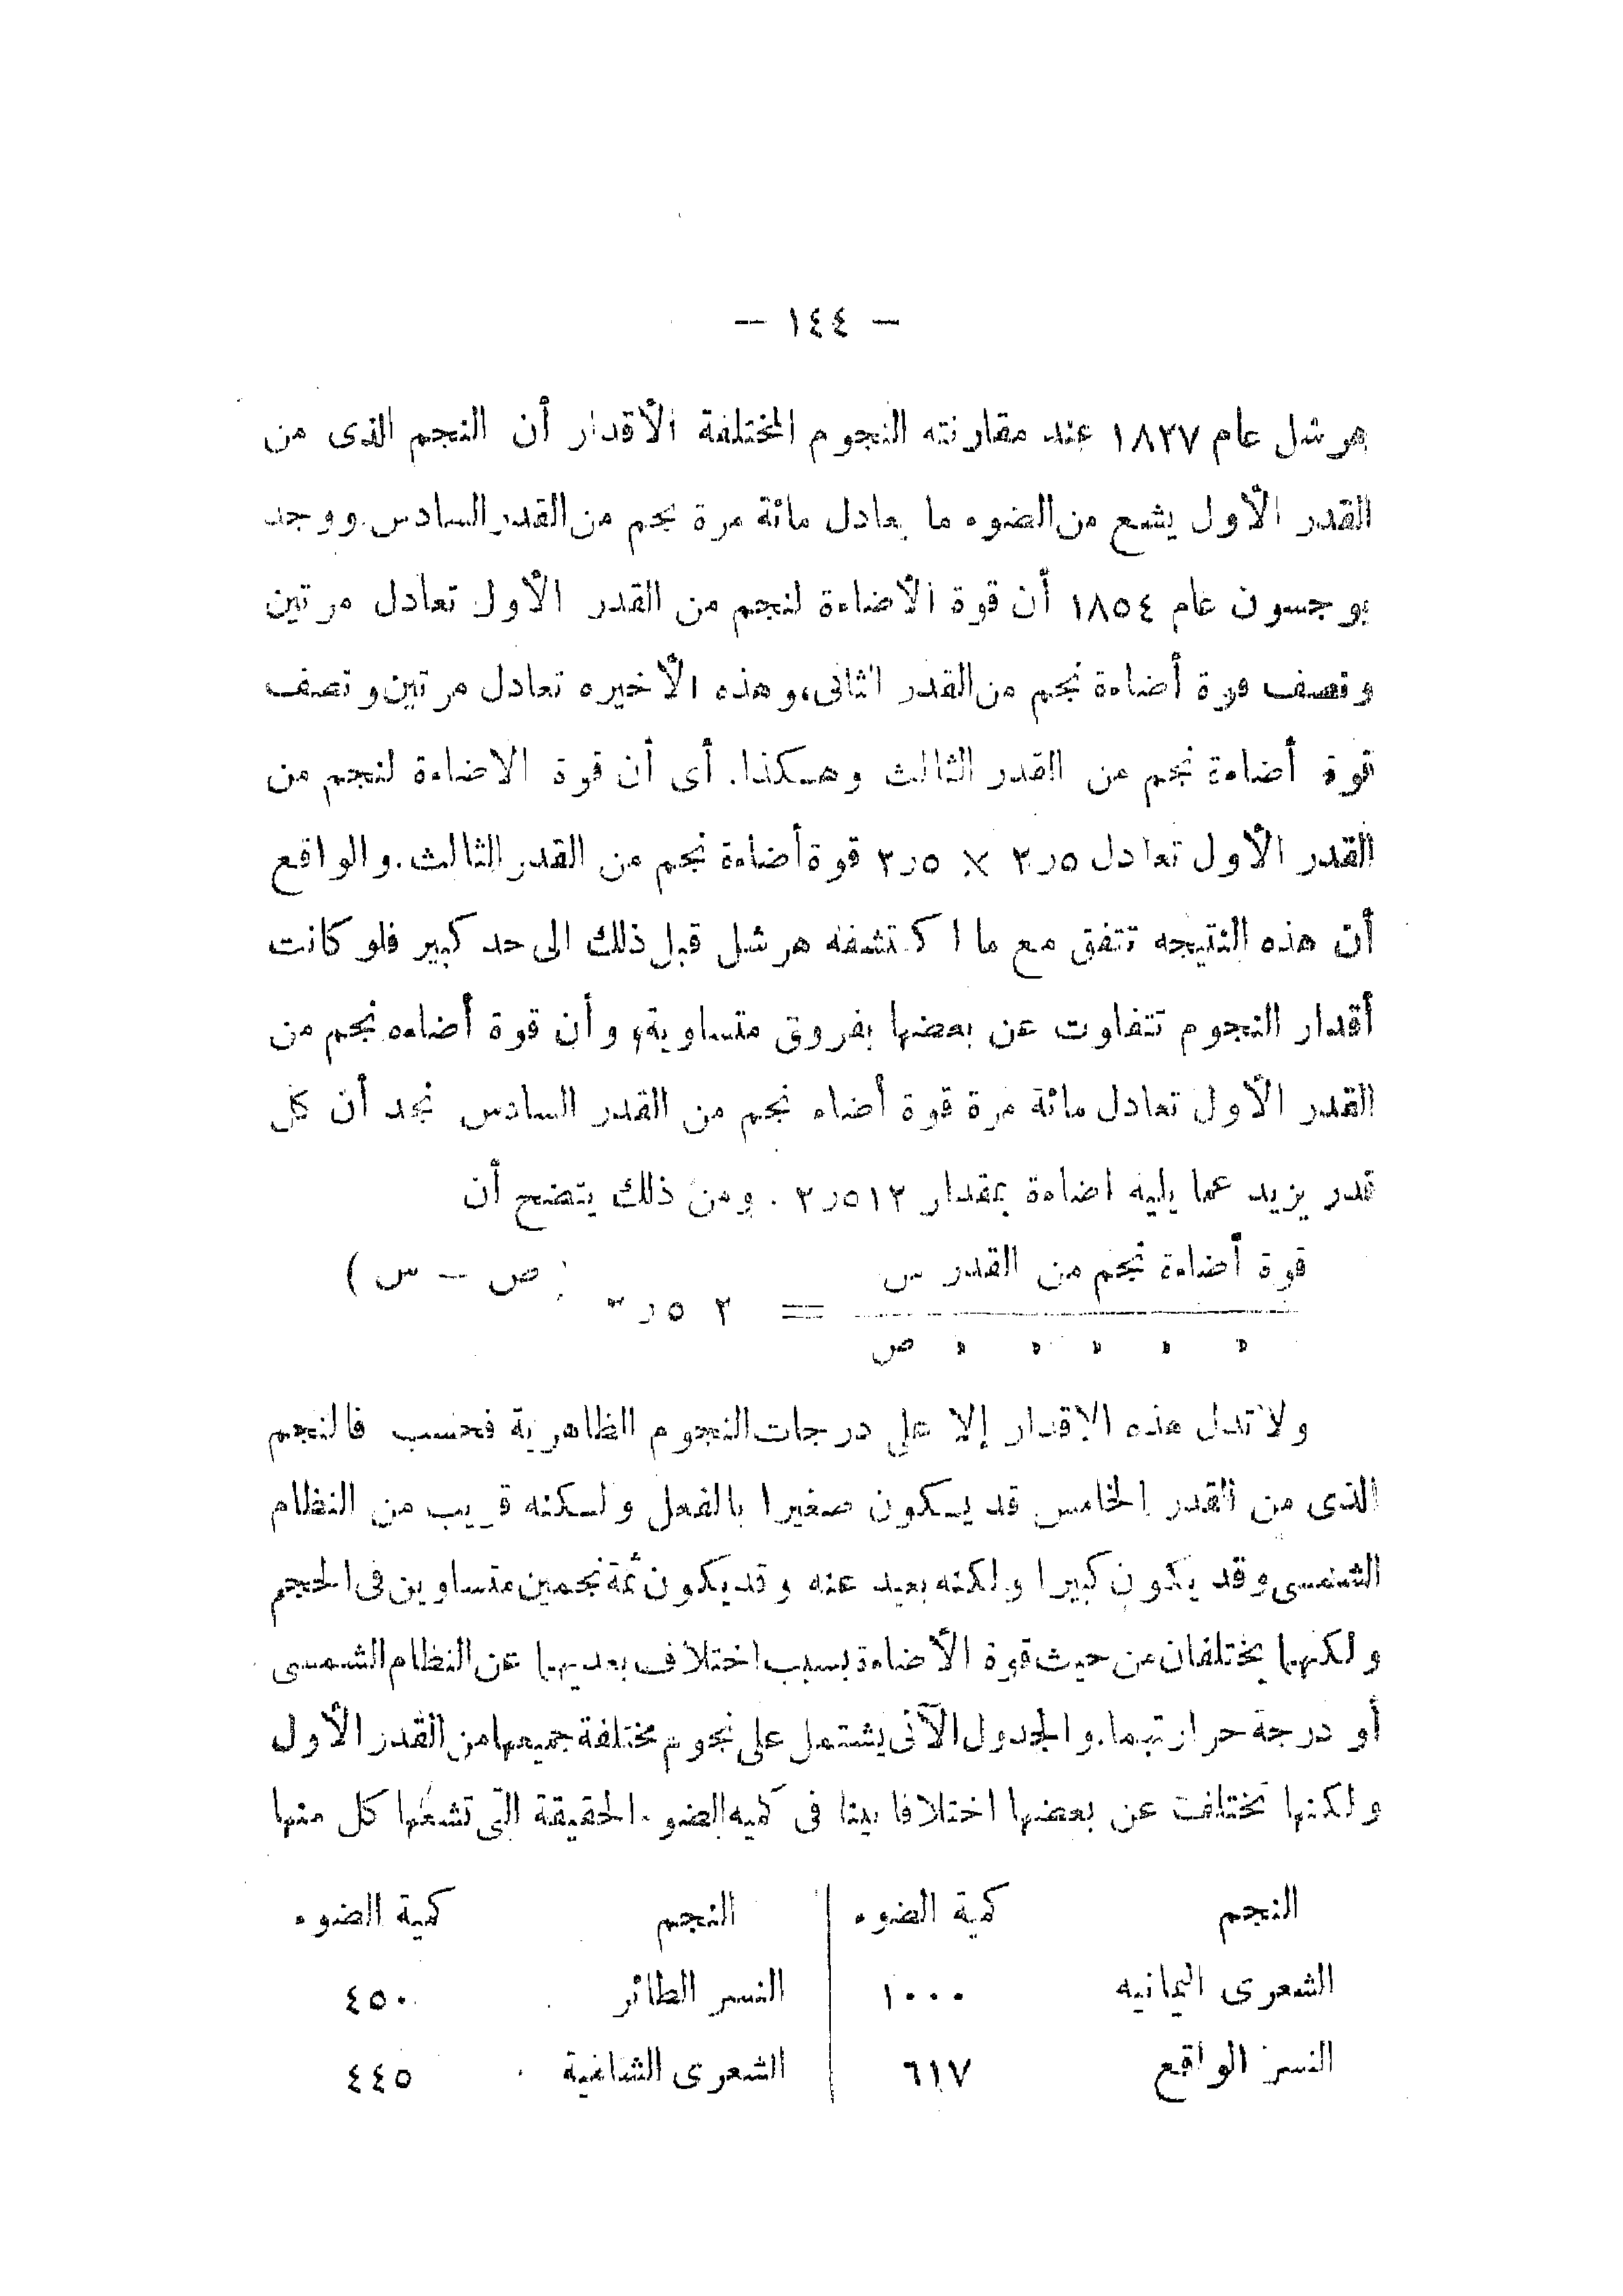 — ١٤٤ —
هرشل عام ١٨٢٧ عند مقارنته النجوم المختلفة الأقدار أن النجم الذى من
القدر الأول يشع من الضوء ما يعادل مائة مرة نجم من القدر السادس. ووجد
بوجسون عام ١٨٥٤ أن قوة الأضاءة لنجم من القدر الأول تعادل مرتين
ونصف قوة أضاءة نجم من القدر الثانى، وهذه الأخيره تعادل مرتين ونصف
قوة أضاءة نجم من القدر الثالث وهكذا. أى أن قوة الاضاءة لنجم من
القدر الأول تعادل ٥ر٢ × ٥ر٢ قوة أضاءة نجم من القدر الثالث. والواقع
أن هذه النتيجه تتفق مع ما اكتشفه هرشل قبل ذلك الى حد كبير فلو كانت
أقدار النجوم تتفاوت عن بعضها بفروق متساوية، وأن قوة أضاءه نجم من
القدر الأول تعادل مائة مرة قوة أضاء نجم من القدر السادس نجد أن كل
قدر يزيد عما يليه اضاءة بمقدار ٥١٢ر٢ . ومن ذلك يتضح أن
قوة أضاءة نجم من القدر س
= ٢ ٥ر (ص — س)
» » » » » ص
ولا تدل هذه الاقدار إلا على درجات النجوم الظاهرية فحسب فالنجم
الذى من القدر الخامس قد يكون صغيرا بالفعل ولكنه قريب من النظام
الشمسى وقد يكون كبيرا ولكنه بعيد عنه وقد يكون ثمة نجمين متساوين فى الحجم
ولكنهما يختلفان من حيث قوة الأضاءة بسبب اختلاف بعديهما عن النظام الشمسى
أو درجة حرارتهما. والجدول الآتى يشتمل على نجوم مختلفة جميعها من القدر الأول
ولكنها تختلف عن بعضها اختلافا بينا فى كميه الضوء الحقيقة التى تشعها كل منها
النجم كمية الضوء النجم كمية الضوء
الشعرى اليمانيه ١٠٠٠ النسر الطائر ٤٥٠
النسر الواقع ٦١٧ الشعرى الشامية ٤٤٥